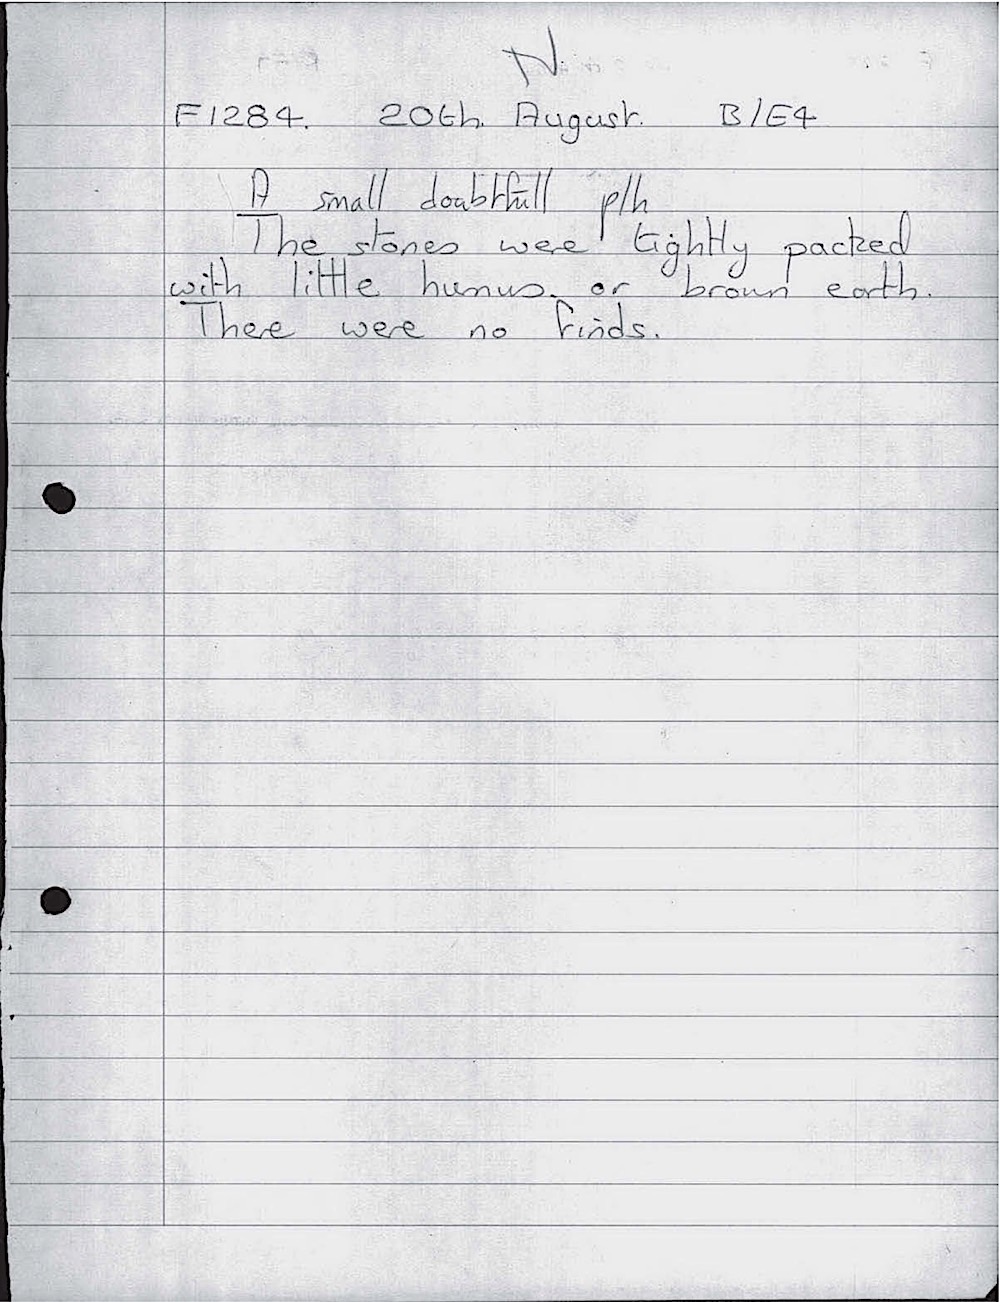 N
F1284. 20th August. B/E4
A small doubtfull p/h
The stones were tightly packed
with little humus. or brown earth.
There were no finds.